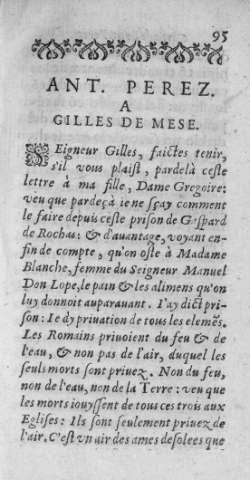 95
ANT. PEREZ.
A
GILLES DE MESE.
SEigneur Gilles, faictes tenir,
s'il vous plaist, pardelà ceste
lettre à ma fille, Dame Gregoire:
veu que pardeçà ie ne sçay comment
le faire depuis ceste prison de Gaspard
de Rochas: & d'auantage, voyant en-
fin de compte, qu'on oste à Madame
Blanche, femme du Seigneur Manuel
Don Lope, le pain & les alimens qu'on
luy donnoit auparauant. I'ay dict pri-
son: Ie dy priuation de tous les elemẽs.
Les Romains priuoient du feu & de
l'eau, & non pas de l'air, duquel les
seuls morts sont priuez. Non du feu,
non de l'eau, non de la Terre: veu que
les morts iouyssent de tous ces trois aux
Eglises: Ils sont seulement priuez de
l'air. C'est vn air des ames desolees que